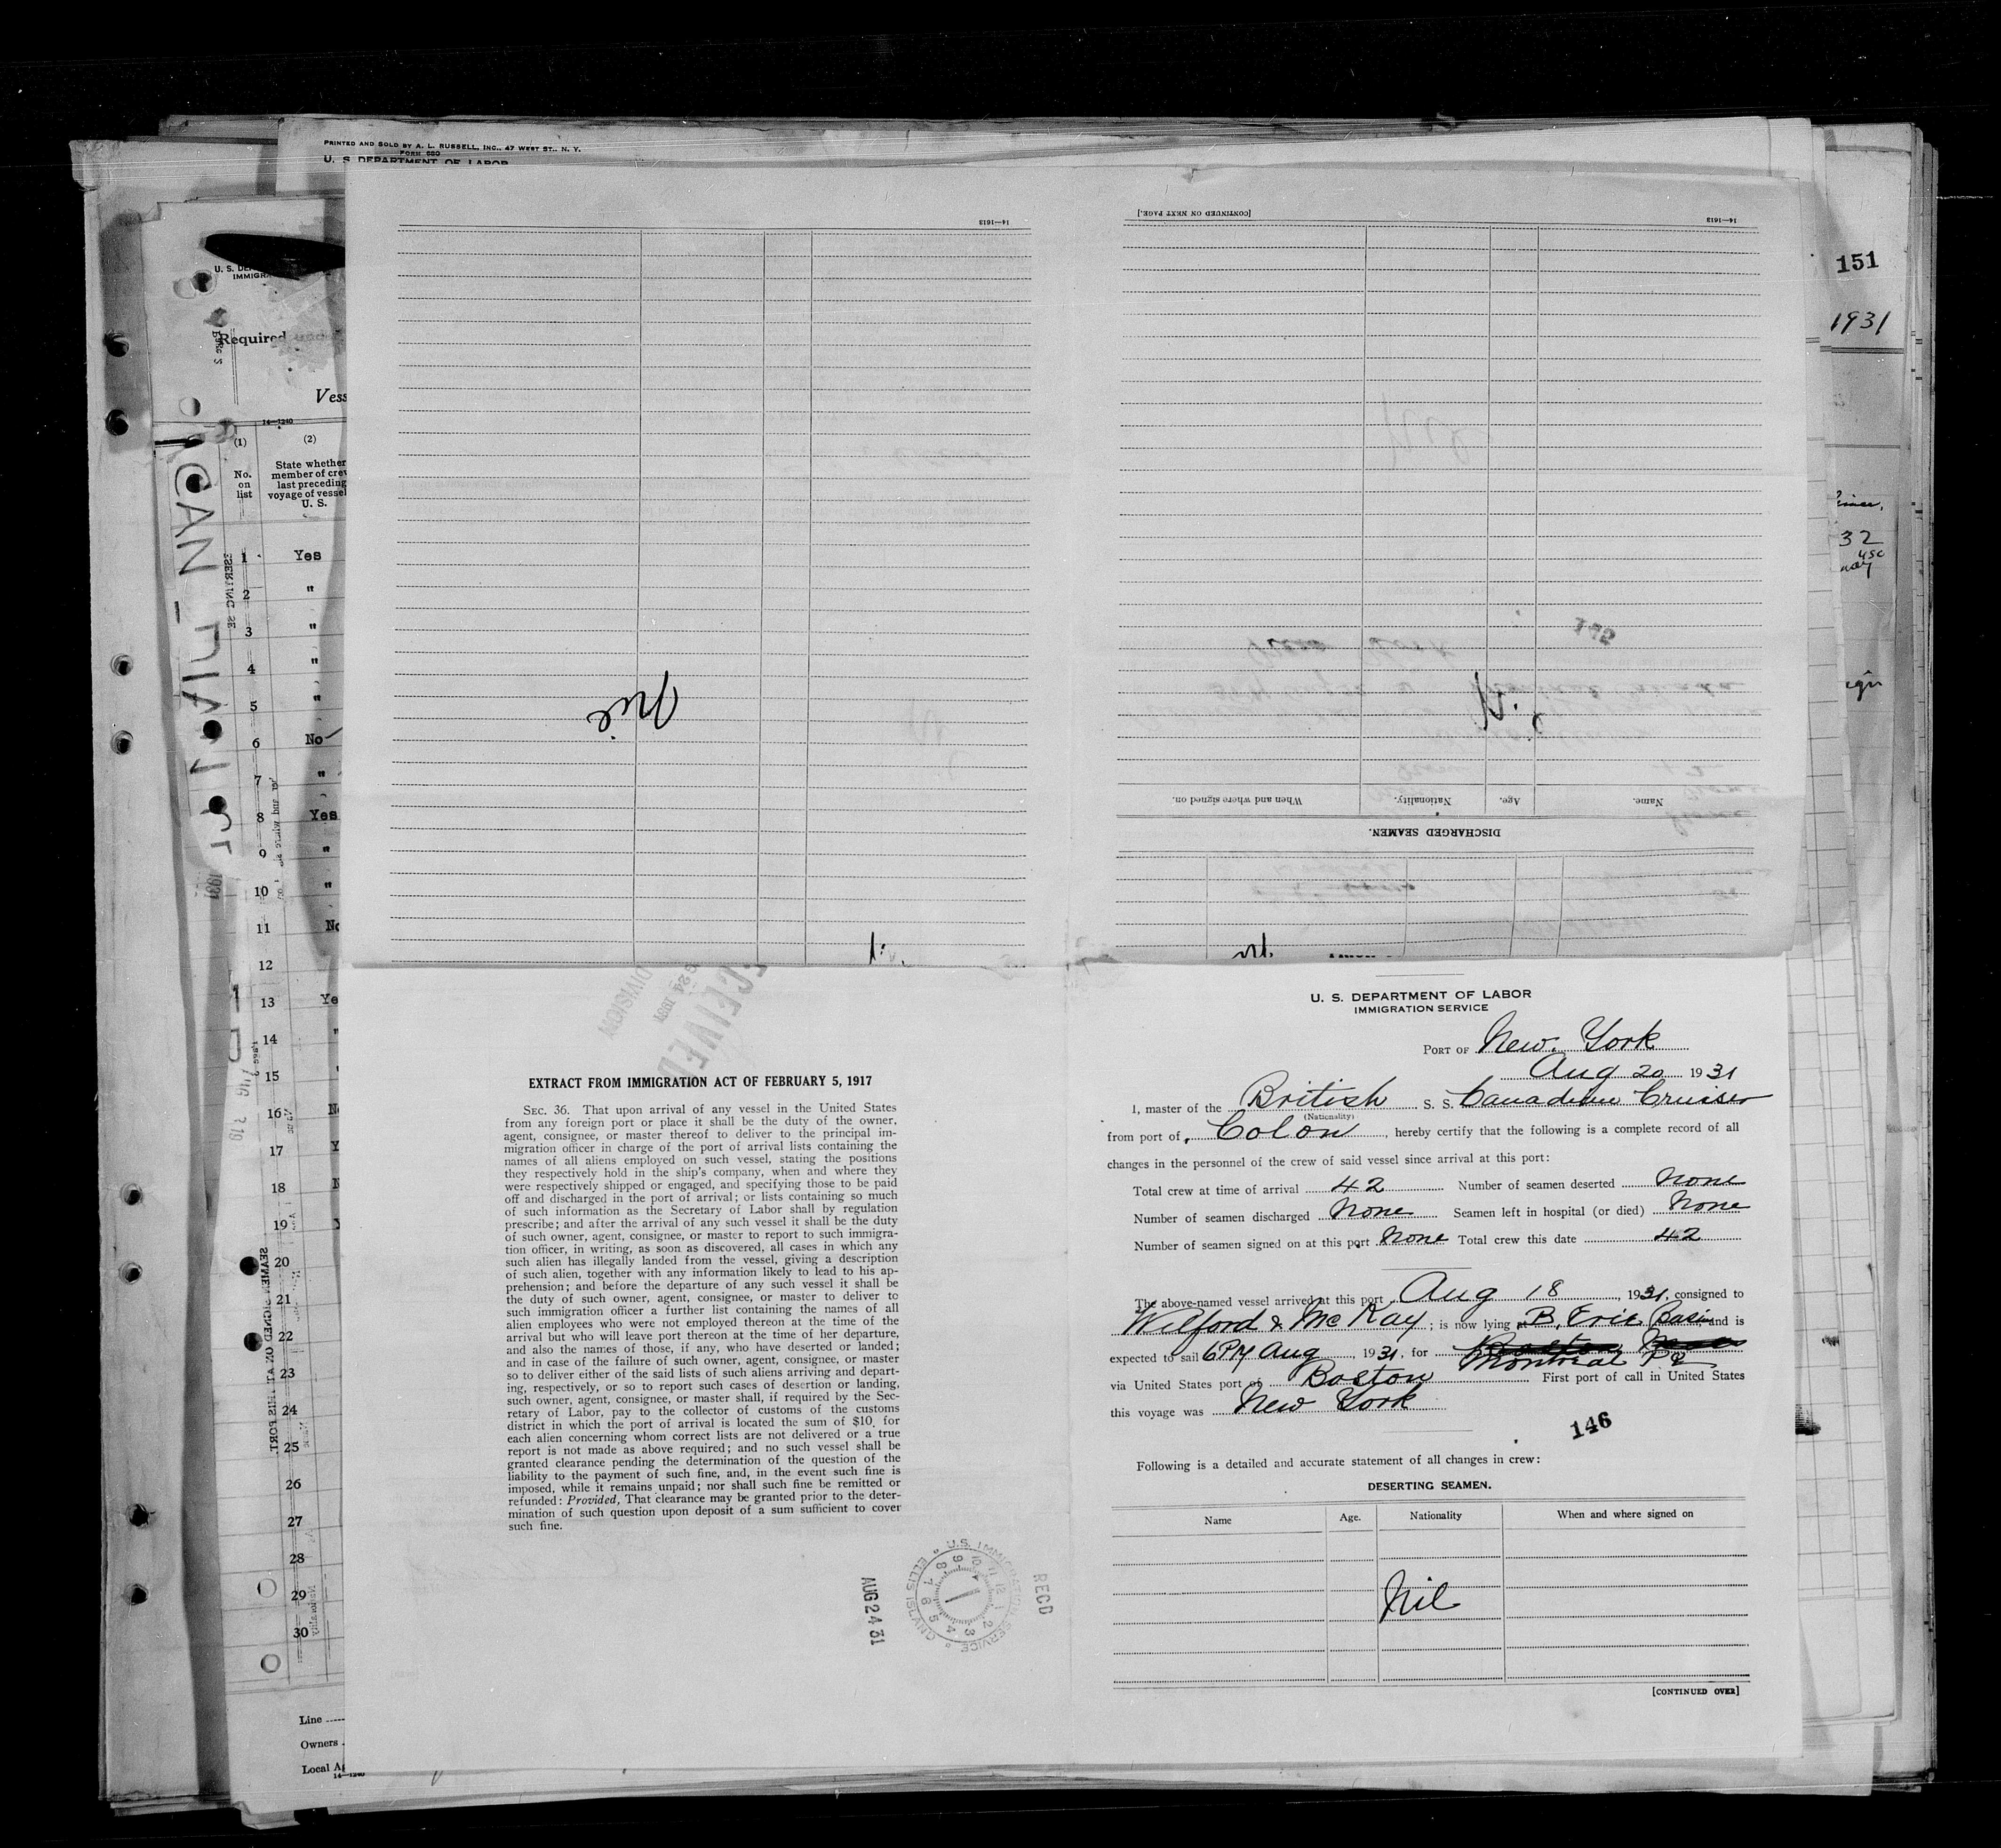 PRINTED AND SOLD BY A. L. RUSSELL, INC., 47 WEST ST., N. Y.
FORM 680
U. S. DEPARTMENT OF LABOR
14—1613
[CONTINUED ON NEXT PAGE.]
14—1613
151
1931
Required under
14—1240
(1)
(2)
No.
on
list
State whether
member of crew
last preceding
voyage of vessel
U. S.
1 Yes
2 "
3 "
4 "
5 "
6 No
7 "
8 Yes
9 "
10 "
11 No
12
13
14
15
16
17
18
19
20
21
22
23
24
25
26
27
28
29
30
Line
Owners
14—1240
32
Nil
145
When and where signed on.
Nationality.
Age.
Name.
DISCHARGED SEAMEN.
RECEIVED
24 1931
DIVISION
EXTRACT FROM IMMIGRATION ACT OF FEBRUARY 5, 1917
SEC. 36. That upon arrival of any vessel in the United States
from any foreign port or place it shall be the duty of the owner,
agent, consignee, or master thereof to deliver to the principal im-
migration officer in charge of the port of arrival lists containing the
names of all aliens employed on such vessel, stating the positions
they respectively hold in the ship's company, when and where they
were respectively shipped or engaged, and specifying those to be paid
off and discharged in the port of arrival; or lists containing so much
of such information as the Secretary of Labor shall by regulation
prescribe; and after the arrival of any such vessel it shall be the duty
of such owner, agent, consignee, or master to report to such immigra-
tion officer, in writing, as soon as discovered, all cases in which any
such alien has illegally landed from the vessel, giving a description
of such alien, together with any information likely to lead to his ap-
prehension; and before the departure of any such vessel it shall be
the duty of such owner, agent, consignee, or master to deliver to
such immigration officer a further list containing the names of all
alien employees who were not employed thereon at the time of the
arrival but who will leave port thereon at the time of her departure,
and also the names of those, if any, who have deserted or landed;
and in case of the failure of such owner, agent, consignee, or master
so to deliver either of the said lists of such aliens arriving and depart-
ing, respectively, or so to report such cases of desertion or landing,
such owner, agent, consignee, or master shall, if required by the Sec-
retary of Labor, pay to the collector of customs of the customs
district in which the port of arrival is located the sum of $10 for
each alien concerning whom correct lists are not delivered or a true
report is not made as above required; and no such vessel shall be
granted clearance pending the determination of the question of the
liability to the payment of such fine, and, in the event such fine is
imposed, while it remains unpaid; nor shall such fine be remitted or
refunded: Provided, That clearance may be granted prior to the deter-
mination of such question upon deposit of a sum sufficient to cover
such fine.
U.S. IMMIGRATION SERVICE
ELLIS ISLAND
RECD
AUG 24 31
U. S. DEPARTMENT OF LABOR
IMMIGRATION SERVICE
PORT OF New York
Aug 20 1931
I, master of the British S. S. Canadian Cruiser
(Nationality)
from port of Colon, hereby certify that the following is a complete record of all
changes in the personnel of the crew of said vessel since arrival at this port:
Total crew at time of arrival 42 Number of seamen deserted None
Number of seamen discharged None Seamen left in hospital (or died) None
Number of seamen signed on at this port None Total crew this date 42
The above-named vessel arrived at this port Aug 18, 1931, consigned to
Wilford & McKay; is now lying at B, Erie Basin and is
expected to sail 6PM Aug, 1931, for Boston Mass
Montreal PQ
via United States port of Boston First port of call in United States
this voyage was New York
146
Following is a detailed and accurate statement of all changes in crew:
DESERTING SEAMEN.
Name Age. Nationality When and where signed on
Nil
[CONTINUED OVER]